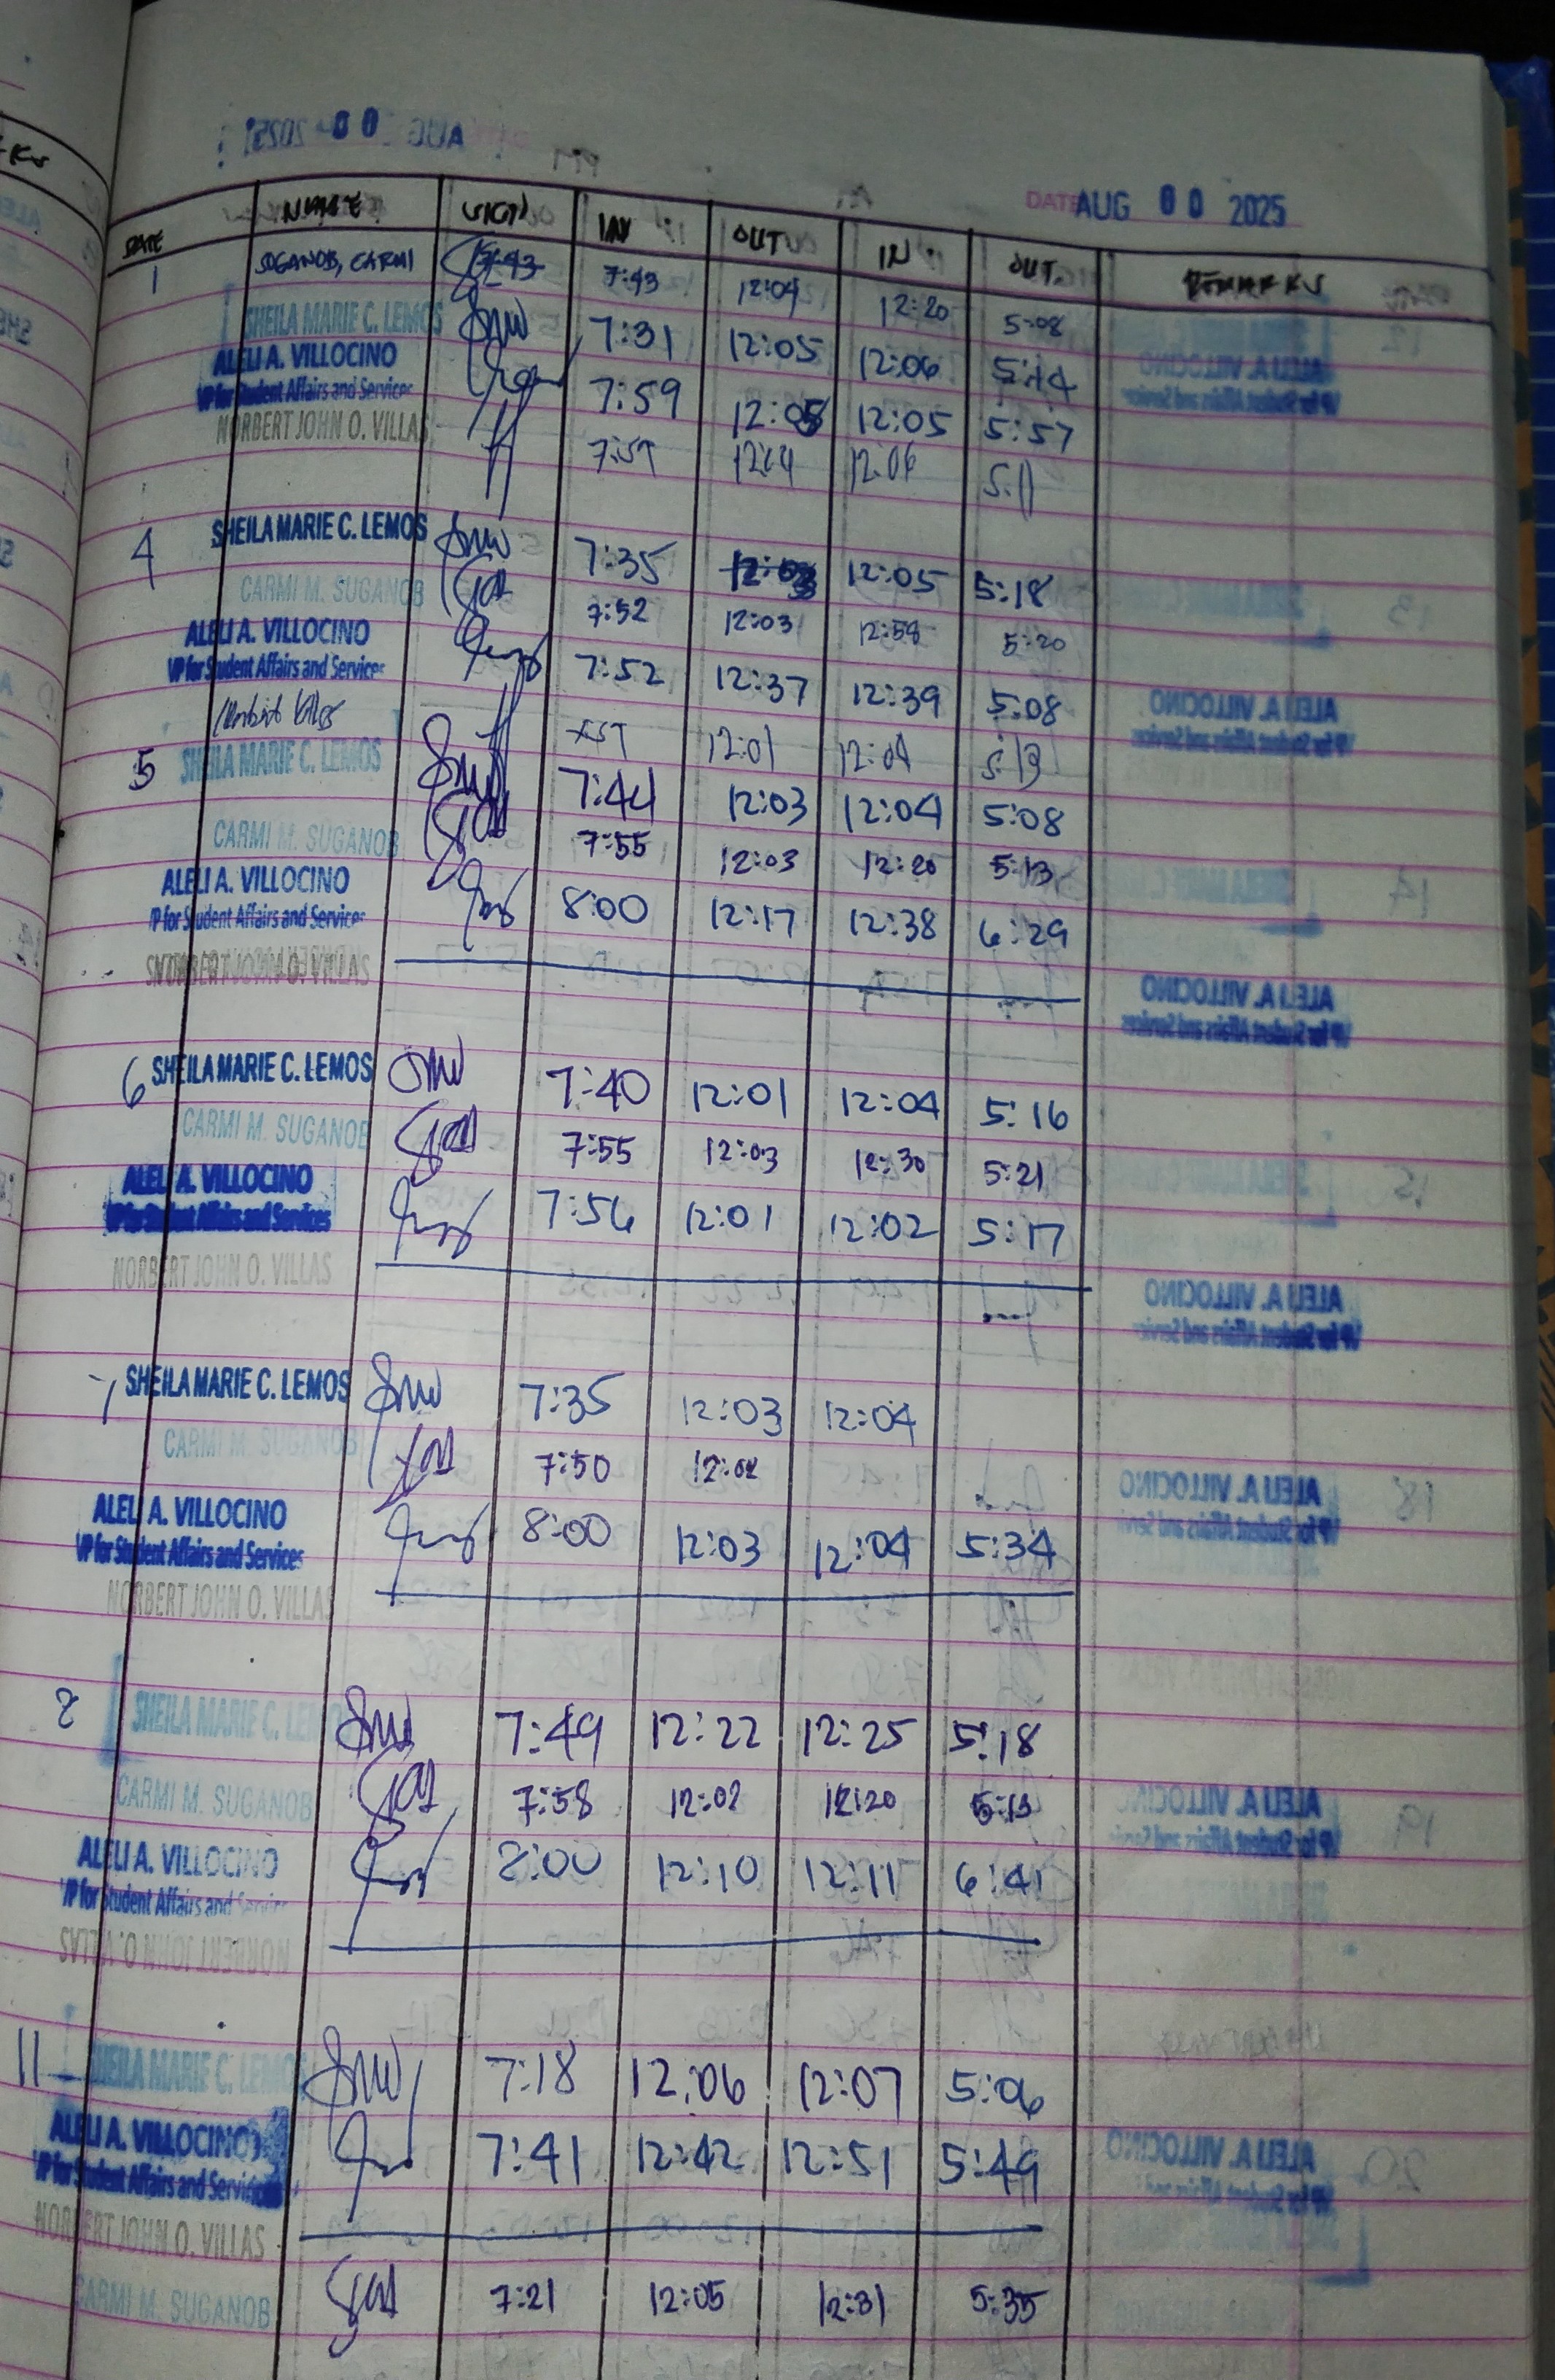 AUG 00 2025
DATE AUG 00 2025
DATE NAME SIGN IN OUT IN OUT REMARKS
1 SUGANOB, CARMI 7:43 7:43 12:04 12:20 5:08
SHEILA MARIE C. LEMOS 7:31 12:05 12:06 5:14
ALELI A. VILLOCINO 7:59 12:05 12:05 5:57
VP for Student Affairs and Services
NORBERT JOHN O. VILLAS 7:57 12:04 12:06 5:11
4 SHEILA MARIE C. LEMOS 7:35 12:03 12:05 5:18
CARMI M. SUGANOB 7:52 12:03 12:59 5:20
ALELI A. VILLOCINO 7:52 12:37 12:39 5:08
VP for Student Affairs and Services
Norbert Villas 12:01 12:04 5:13
5 SHEILA MARIE C. LEMOS 7:44 12:03 12:04 5:08
CARMI M. SUGANOB 7:55 12:03 12:20 5:13
ALELI A. VILLOCINO 8:00 12:17 12:38 6:29
VP for Student Affairs and Services
NORBERT JOHN O. VILLAS
6 SHEILA MARIE C. LEMOS 7:40 12:01 12:04 5:16
CARMI M. SUGANOB 7:55 12:03 12:30 5:21
ALELI A. VILLOCINO 7:56 12:01 12:02 5:17
VP for Student Affairs and Services
NORBERT JOHN O. VILLAS
7 SHEILA MARIE C. LEMOS 7:35 12:03 12:04
CARMI M. SUGANOB 7:50 12:02
ALELI A. VILLOCINO 8:00 12:03 12:04 5:34
VP for Student Affairs and Services
NORBERT JOHN O. VILLAS
8 SHEILA MARIE C. LEMOS 7:49 12:22 12:25 5:18
CARMI M. SUGANOB 7:58 12:02 12:20 5:13
ALELI A. VILLOCINO 8:00 12:10 12:11 6:41
VP for Student Affairs and Services
NORBERT JOHN O. VILLAS
11 SHEILA MARIE C. LEMOS 7:18 12:06 12:07 5:06
ALELI A. VILLOCINO 7:41 12:42 12:51 5:49
VP for Student Affairs and Services
NORBERT JOHN O. VILLAS
CARMI M. SUGANOB 7:21 12:05 12:31 5:35